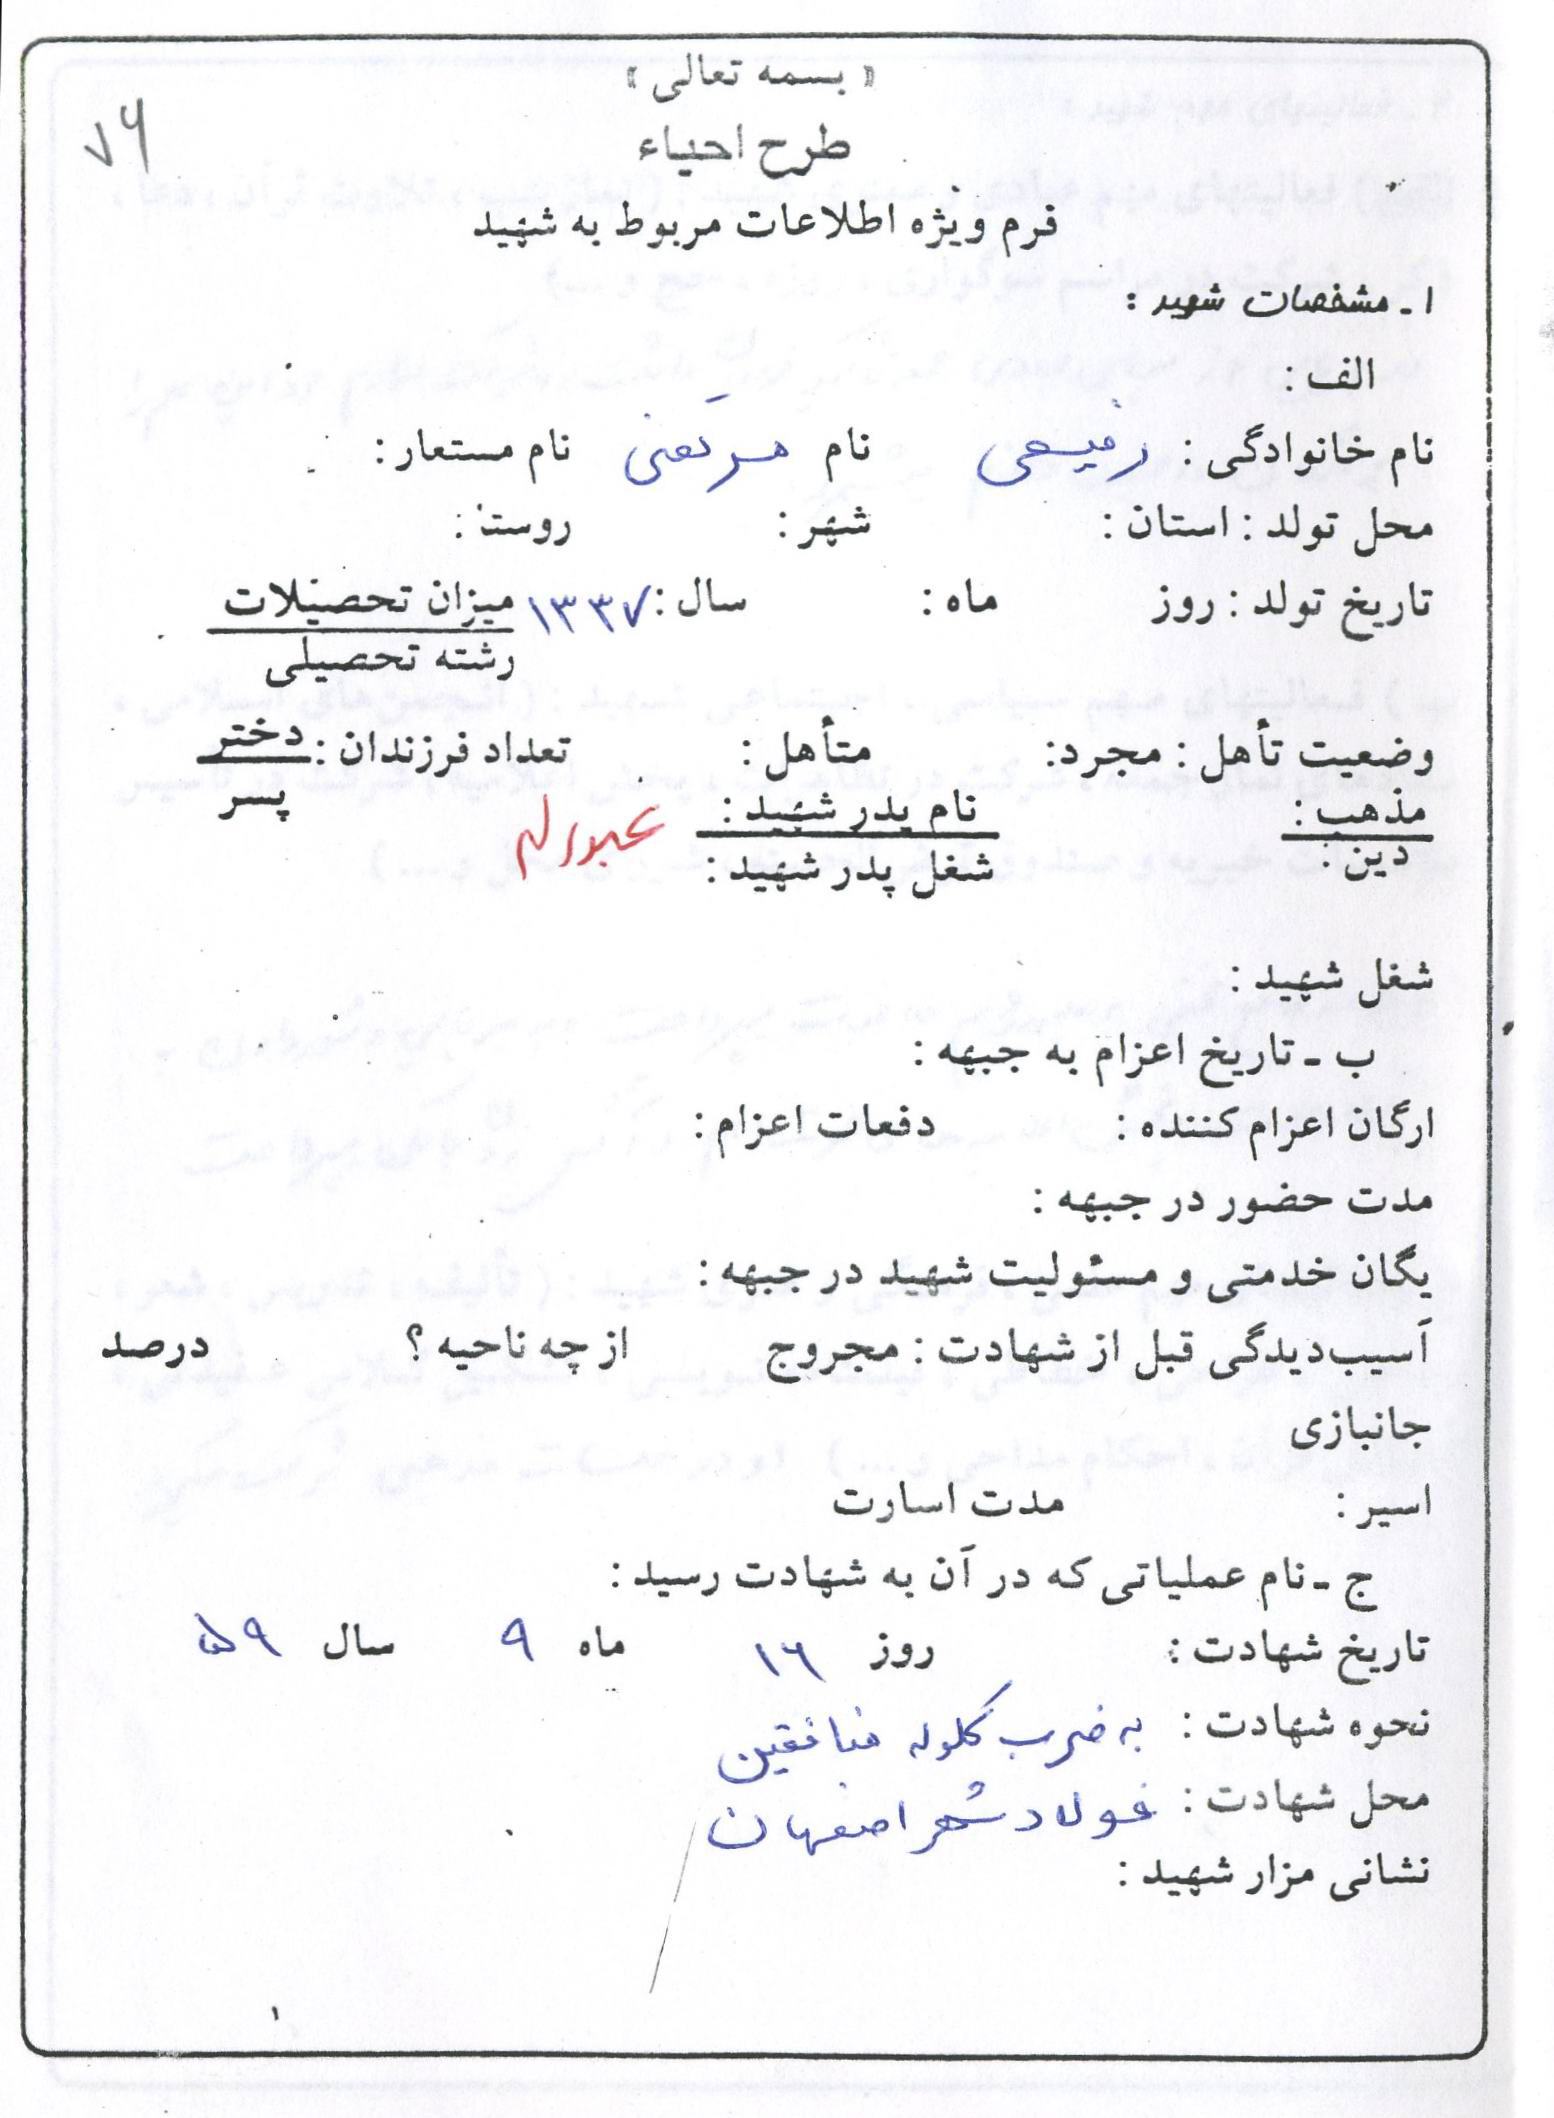 « بسمه تعالی »
۷۶
طرح احیاء
فرم ویژه اطلاعات مربوط به شهید
۱ـ مشخصات شهید :
الف :
نام خانوادگی : رفیعی نام مرتضی نام مستعار :
محل تولد : استان : شهر : روستا :
تاریخ تولد : روز ماه : سال : ۱۳۳۷ میزان تحصیلات
رشته تحصیلی
وضعیت تأهل : مجرد: متأهل : تعداد فرزندان : دختر
پسر
مذهب : نام پدر شهید : عبداله
دین : شغل پدر شهید :
شغل شهید :
ب ـ تاریخ اعزام به جبهه :
ارگان اعزام کننده : دفعات اعزام :
مدت حضور در جبهه :
یگان خدمتی و مسئولیت شهید در جبهه :
آسیب‌دیدگی قبل از شهادت : مجروح از چه ناحیه ؟ درصد
جانبازی
اسیر : مدت اسارت
ج ـ نام عملیاتی که در آن به شهادت رسید :
تاریخ شهادت : روز ۱۶ ماه ۹ سال ۵۹
نحوه شهادت : به ضرب گلوله منافقین
محل شهادت : فولادشهر اصفهان
نشانی مزار شهید :
۱